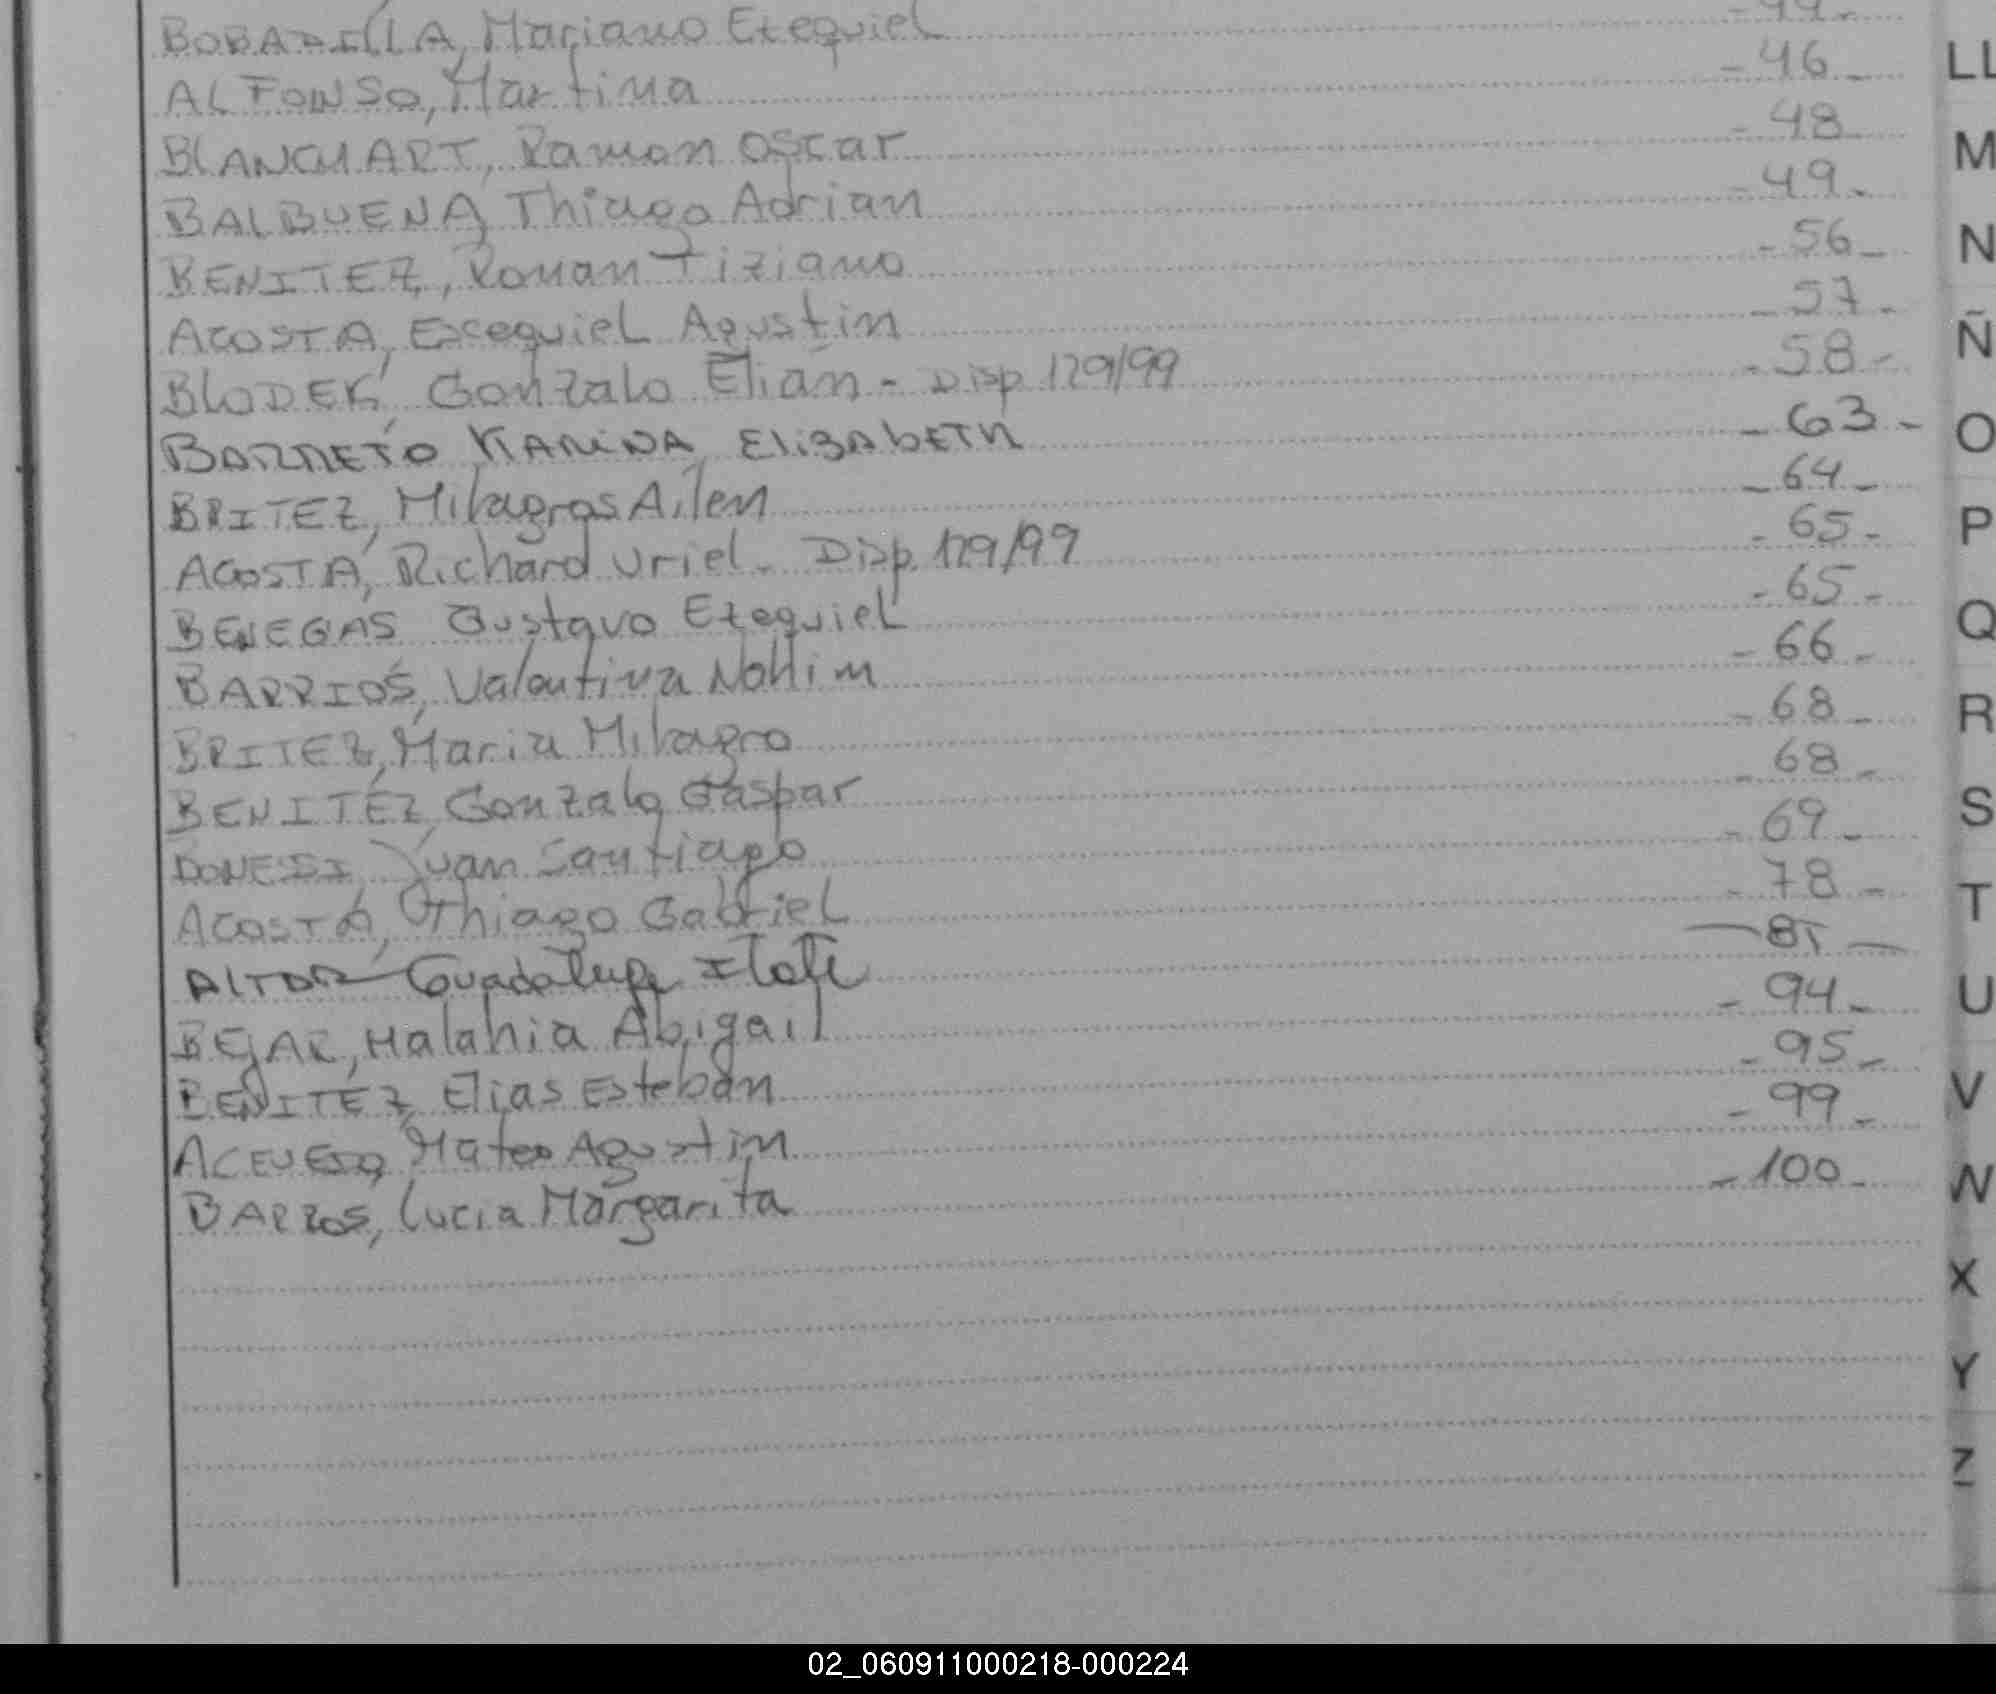 BOBADILLA, Mariano Ezequiel -44-
ALFONSO, Martina -46-
BLANCHART, Ramon Oscar -48
BALBUENA, Thiago Adrian -49-
BENITEZ, Roman Tiziano -56-
ACOSTA, Escequiel Agustin -57-
BLODEK, Gonzalo Elián - Disp 129/99 -58-
BARRETO KARINA ELIZABETH -63-
BRITEZ, Milagros Ailen -64-
ACOSTA, Richard Uriel - Disp. 129/99 -65-
BENEGAS Gustavo Ezequiel -65-
BARRIOS, Valentina Nahim -66-
BRITEZ, Maria Milagro -68-
BENITEZ, Gonzalo Gaspar -68-
Juan Santiago -69-
ACOSTA, Thiago Gabriel -78-
Guadalupe Itati
BEJAR, Malahia Abigail -94-
BENITEZ, Elias Esteban -95-
ACEVEDO, Mateo Agustin -99-
BARROS, Lucia Margarita -100-
LL
M
N
Ñ
O
P
Q
R
S
T
U
V
W
X
Y
Z
02_060911000218-000224